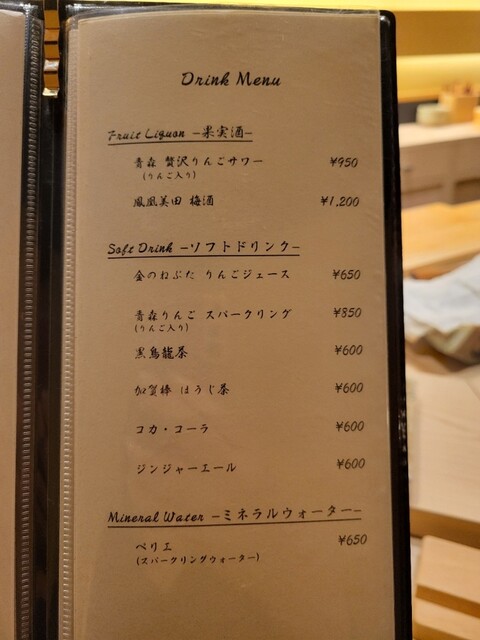 Drink Menu
Fruit Liquor －果実酒－
青森 贅沢りんごサワー ¥950
(りんご入り)
鳳凰美田 梅酒 ¥1,200
Soft Drink －ソフトドリンク－
金のねぶた りんごジュース ¥650
青森りんご スパークリング ¥850
(りんご入り)
黒烏龍茶 ¥600
加賀棒 ほうじ茶 ¥600
コカ・コーラ ¥600
ジンジャーエール ¥600
Mineral Water －ミネラルウォーター－
ペリエ ¥650
(スパークリングウォーター)